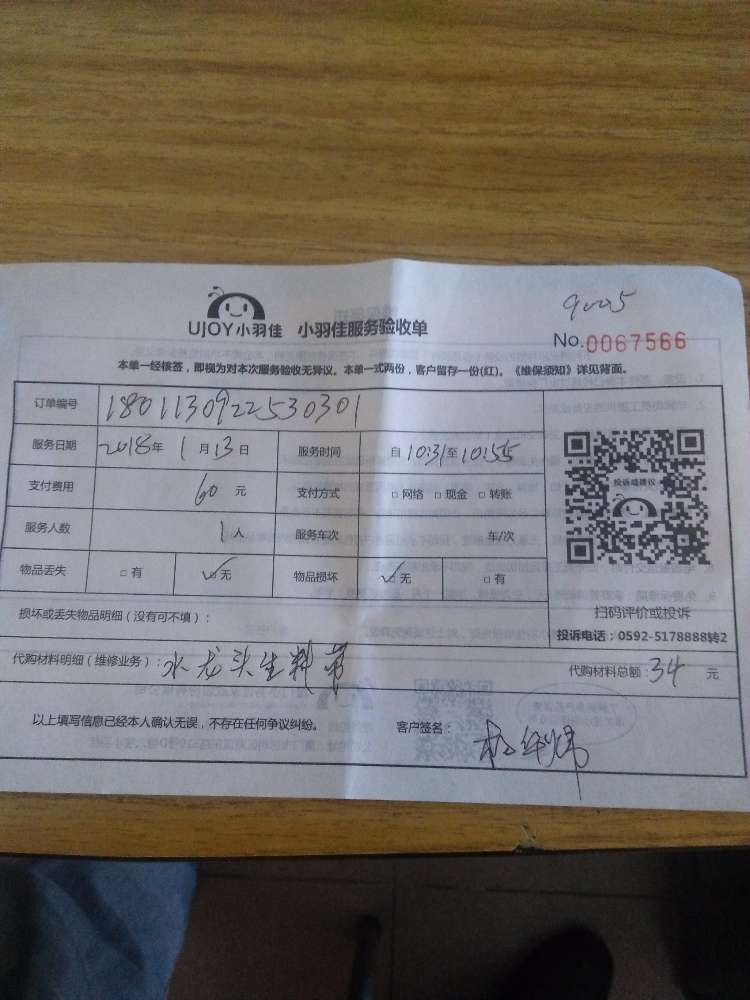 9005
UJOY小羽佳 小羽佳服务验收单
No.0067566
本单一经核签，即视为对本次服务验收无异议。本单一式两份，客户留存一份(红)。《维保须知》详见背面。
订单编号 180113092253030​1
服务日期 2018年 1月13日 服务时间 自10:31至10:55
支付费用 60元 支付方式 □网络 □现金 □转账
服务人数 1人 服务车次 车/次
物品丢失 □有 ✓无 物品损坏 ✓无 □有
投诉或建议
扫码评价或投诉
投诉电话：0592-5178888转2
损坏或丢失物品明细（没有可不填）：
代购材料明细（维修业务）：水龙头生料带 代购材料总额：34元
以上填写信息已经本人确认无误，不存在任何争议纠纷。 客户签名：